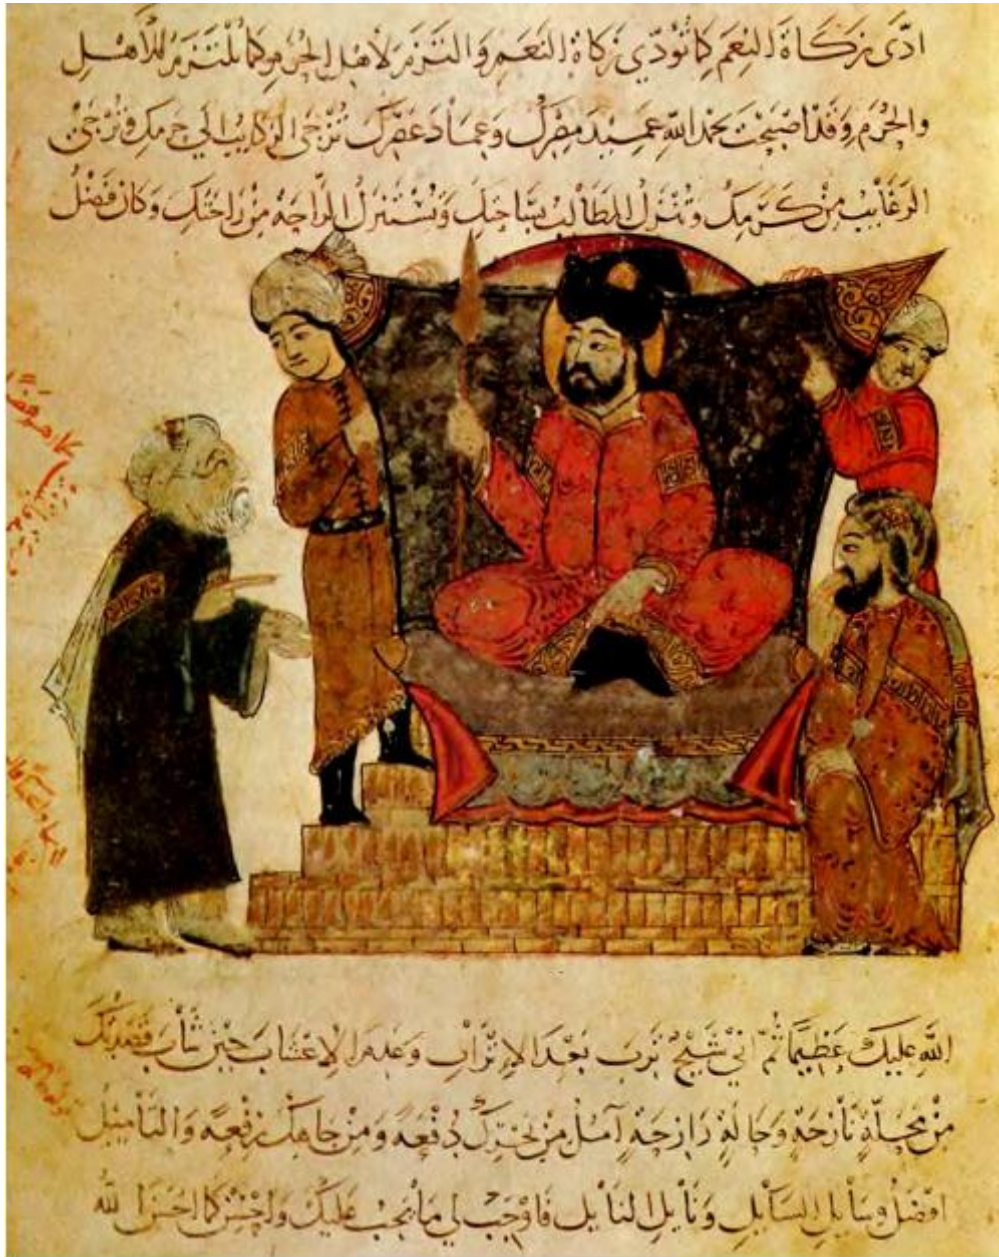 ادّى زكَاةَ النِعَم كما تُؤدّي زكاة النَعَم والتزَمَ لأهل الحُرَم كما يُلتَزمُ للأهْلِ
والحُرَم وقد اصبَحْت بحمد الله عَميدَ مِصْرِكَ وعِمَادَ عَصْرِكَ تُزْجَى الركايبُ الى حَرمِك وتُرْجَى
الرغَايبُ مِنْ كَرَمِكَ وتُنْزَلُ المطَالبُ بِسَاحَتِكَ وتُسْتَنزَلُ الرَّاحَةُ مِنْ رَاحَتِكَ وَكانَ فَضْلُ
اللهِ عَلَيكَ عَظيمًا ثُمّ انّي شَيْخٌ تَرِبَ بَعْدَ الاِترَابِ وعَدِمَ الاِعْشابَ حِيْنَ شَابَ قَصَدْتُكَ
مِنْ مَحَلّةٍ نَازِحَةٍ وحَالَةٍ رَازِحَةٍ آمُلُ مِنْ بَحْرِكَ دُفْعَةً وَمِنْ جاهِكَ رِفْعةً والتَأمِيْلُ
افْضَلُ وسَايِلِ السَايِلِ وَنَايلِ النَايلِ فَاَوْجِبْ لي مَا يَجِبُ عَلَيْكَ وَاحْسِنْ كَمَا احْسَنَ الله